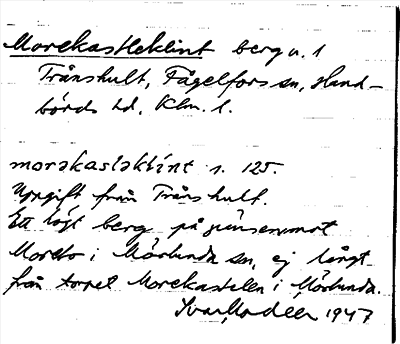 Morekastleklint berg n. i
Trånshult, Fågelfors sn, Hand-
börds hd. Klm. l.
morəkasləklínt s. 125.
Uppgift från Trånshult.
Ett högt berg på gränsen mot
i Mörlunda sn, ej långt
från torpet Morekastelen i Mörlunda.
Ivar Modéer 1947